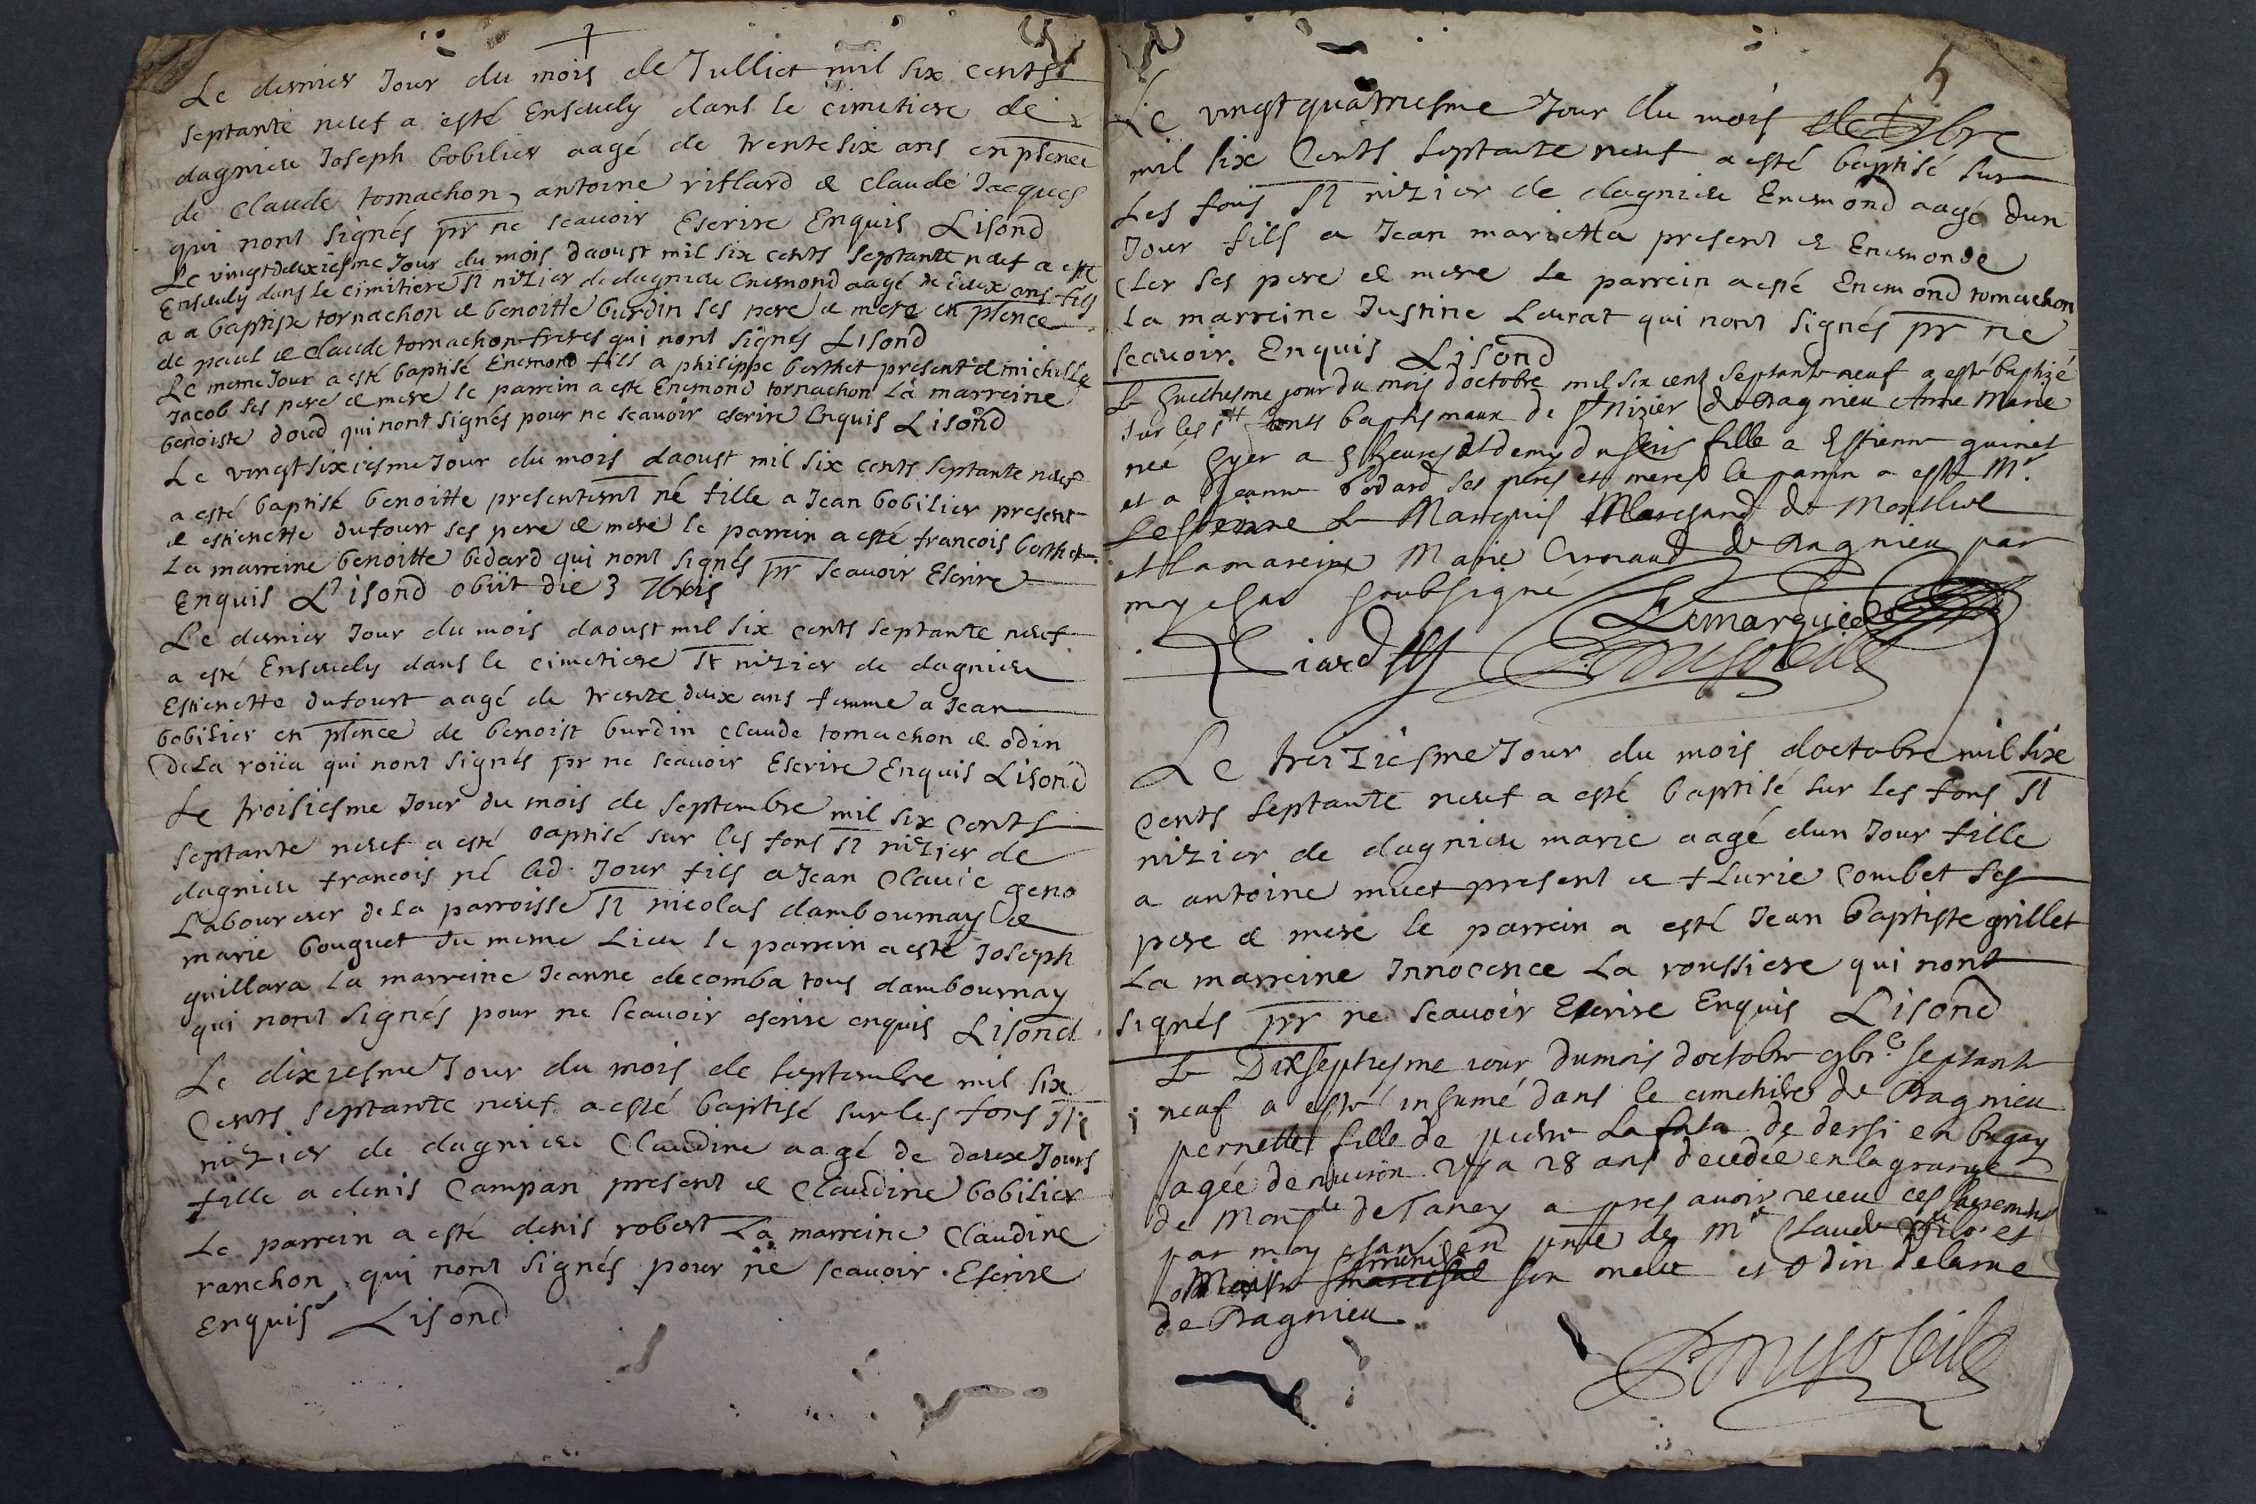 Le dernier Jour du mois de Julliet mil six cents
septante neuf a esté Enseuely dans le cimetiere de
dagnieu Joseph bobilier aagé de trente six ans en pñce
de Claude tornachon, antoine riflard & Claude Jacques
qui nont signés pr ne scauoir Escrire Enquis Lisond
Le vingtdeuxiesme Jour du mois daoust mil six cents septante neuf a esté
Enseuely dans le cimitiere st nizier de dagnieu Enemond aagé de deux ans fils
a a baptiste tornachon & benoitte burdin ses pere & mere en pñce
de paul & Claude tornachon freres qui nont signés Lisond
Le meme Jour a esté baptisé Enemond fils a philippe berthet present & michelle
Jacob ses pere & mere le parrein a esté Enemond tornachon La marreine
benoiste doud qui nont signés pour ne scauoir escrire Enquis Lisond
Le vingtsixiesme Jour du mois daoust mil six cents septante neuf
a esté baptisé benoitte né fille a Jean bobilier present
& estienette dufourt ses pere & mere le parrein a esté francois berthet
La marreine benoitte bedard qui nont signés pr scauoir Escrire
Enquis Lisond obiit die 3 7bris
Le dernier Jour du mois daoust mil six cents septante neuf
a esté Enseuely dans le cimetiere st nizier de dagnieu
Estienette dufourt aagé de trente deux ans femme a Jean
bobilier en pñce de benoist burdin Claude tornachon & odin
de La qui nont signés pr ne scauoir Escrire Enquis Lisond
Le troisiesme Jour du mois de septembre mil six cents
septante neuf a esté baptisé sur les fons st nizier de
dagnieu francois né led. Jour fils a Jean Claude geno
Laboureur de La parroisse st nicolas dambournay &
marie bouguet du meme Lieu le parrein a esté Joseph
guillara La marreine Jeanne decomba tous dambournay
qui nont signés pour ne scauoir escrire enquis Lisond
Le dixiesme Jour du mois de septembre mil six
Cents septante neuf a esté baptisé sur les fons st
nizier de dagnieu Claudine aagé de deux Jours
fille a denis Campan present & Claudine bobilier
Le parrein a esté denis robert La marreine Claudine
ranchon qui nont signés pour ne scauoir Escrire
Enquis Lisond
Le vingtquatriesme Jour du mois de 7bre
mil six Cents septante neuf a esté baptisé sur
Les fons st nizier de dagnieu Enemond aagé dun
Jour fils a Jean marietta present & Enemonde
Cler ses pere & mere Le parrein a esté Enemond tornachon
La marreine Justine Leurat qui nont signés pr ne
scauoir. Enquis Lisond
Le jour du mois doctobre mil six cent septante neuf a esté baptizé
sur les fonts baptismaux de st Nizier de Dagnieu Anne Marie
neé hyer a heures et demy du soir fille a Estienne guinet
et a Jeanne bodard ses peres et meres le parrin a esté Mr
Estienne Le Marquis Marchand de Montluel
et la mareine Marie Arnaud de Dagnieu par
moy soubsigné
Lemarquis
Le treiziesme Jour du mois doctobre mil six
Cents septante neuf a esté baptisé sur les fons st
nizier de dagnieu marie aagé dun Jour fille
a antoine muet present & flurie Combet ses
pere & mere le parrein a esté Jean baptiste grillet
La marreine Innocence La roussiere qui nont
signés pr ne scauoir Escrire Enquis Lisond
Le Dixseptiesme iour du mois doctobre septante
neuf a esté inhumé dans le cimetiere de Dagnieu
pernette fille de pierre Lafala de en bugey
agée denuiron a 28 ans decedée en la grange
de Monsr de Taney apres auoir receu ces sacremens
par moy de Mr Claude et
son et Odin delarue
de Dagnieu